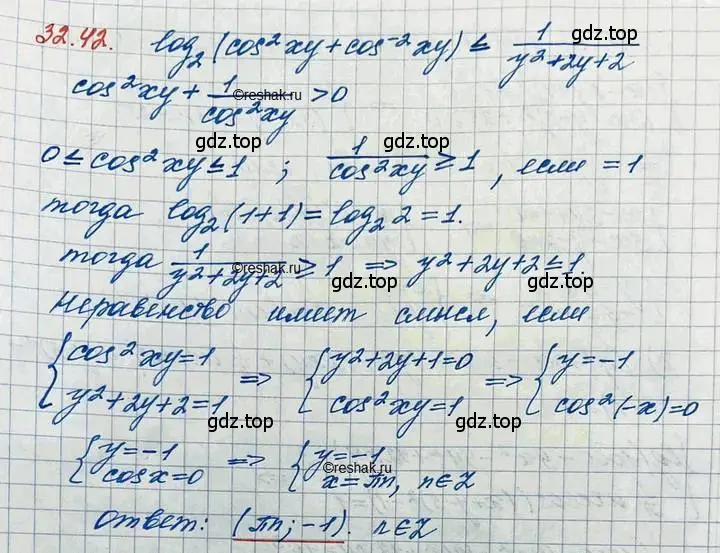 32.42. log₂(cos²xy + cos⁻²xy) ≤ 1/(y²+2y+2)
gdz.top gdz.top
cos²xy + 1/cos²xy > 0
©reshak.ru
gdz.top gdz.top
0 ≤ cos²xy ≤ 1 ; 1/cos²xy ≥ 1, если = 1
тогда log₂(1+1) = log₂2 = 1.
тогда 1/(y²+2y+2) ≥ 1 ⇒ y²+2y+2 ≤ 1.
©reshak.ru
gdz.top gdz.top
Неравенство имеет смысл, если
{cos²xy=1 ⇒ {y²+2y+1=0 ⇒ {y=-1
{y²+2y+2=1 {cos²xy=1 {cos²(-x)=0
gdz.top gdz.top
{y=-1 ⇒ {y=-1
{cosx=0 {x=πn, n∈Z
gdz.top gdz.top
©reshak.ru
Ответ: (πn; -1). n∈Z